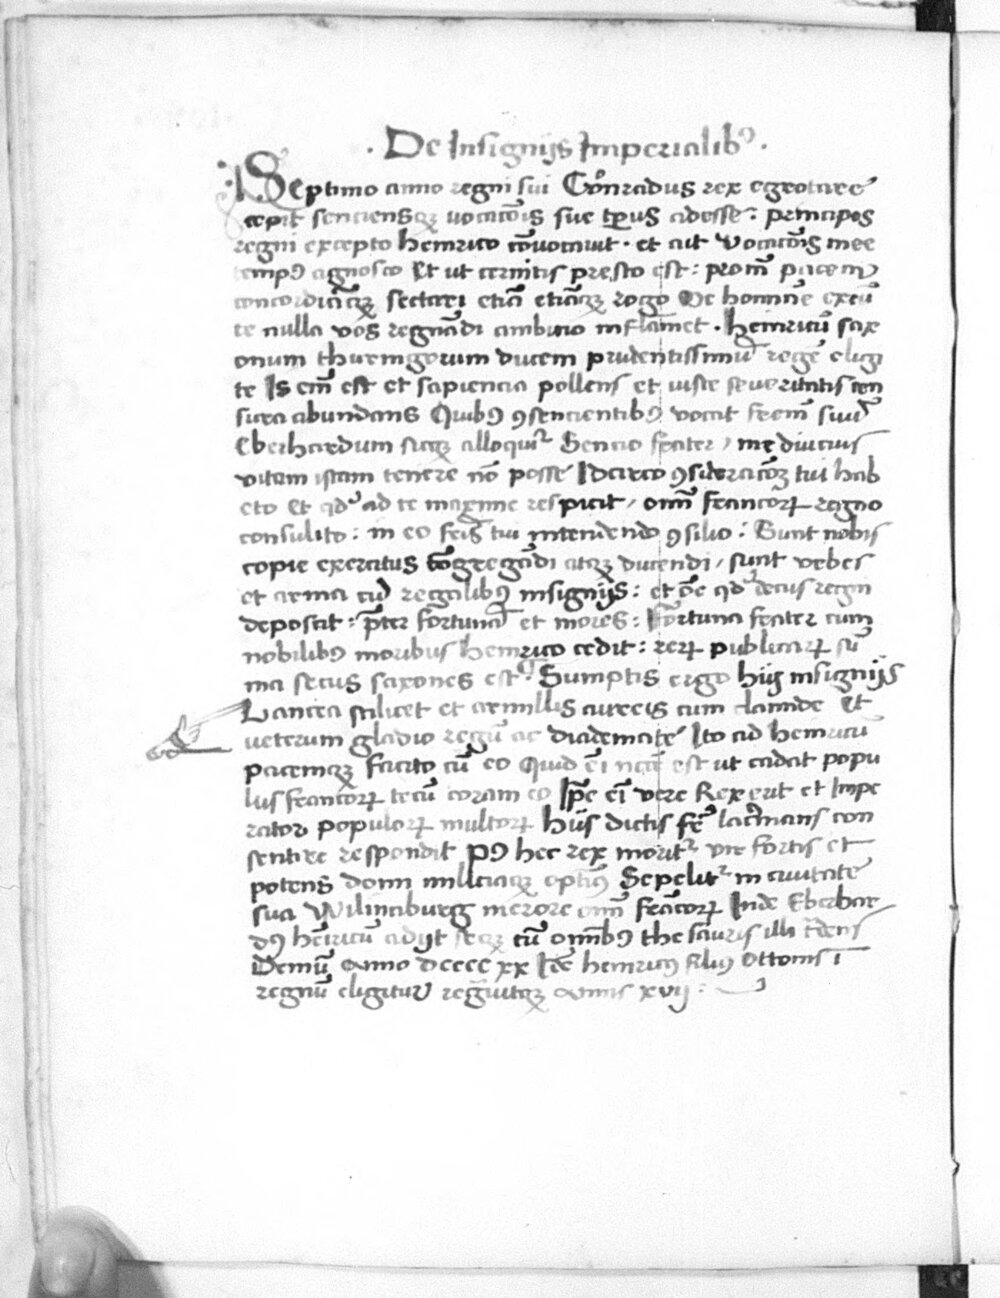 · De Insignijs Imperialibꝰ ·
Septimo anno regni sui Conradus rex egrotare
cepit senciensqꝫ vocacõis sue tp̃us adesse : principes
regni excepto heinrico cõuocauit · et ait Vocacõis mee
tempꝰ agnosco Et ut cernitis presto est : pacem
concordiãqꝫ sectari etiã etiãqꝫ rogo Ne homine exeũ
te nulla vos regnãdi ambicio inflãmet · heinricũ sax
onum thuringorum ducem prudentissimũ regẽ eligi
te Is em̃ est et sapiencia pollens et iuste seueritatis cen
sura abundans Quibꝰ ꝯsencientibꝰ vocat fr̃em suũ
Eberhardum sicqꝫ alloquiť Sencio frater / me diucius
vitam istam tenere nõ posse Idcirco ꝯsideracõꝫ tui hab
eto Et qď ad te maxime respicit / om̃i francoꝝ regno
consulito : in eo fr̃is tui intendendo ꝯsilio : Sunt nobis
copie exercitus cõgregãdi atqꝫ ducendi / sunt vrbes
et arma cũ regalibꝰ insignijs : et õe qď decus regni
deposcit : p̃ter fortunã et mores : Fortuna frater cum
nobilibꝰ moribus heinrico cedit : reꝝ publicaꝝ sũ
ma secus saxones est · Sumptis ergo hijs insignijs
Lancea scilicet et armillis aureis cum clamide Et
veterum gladio regũ ac diademate Ito ad heinricũ
pacemqꝫ facito cũ eo Quid em̃ est ut cadat popu
lus francoꝝ tecũ coram eo Ip̃e em̃ vere Rex erit et Impe
rator populoꝝ multoꝝ hijs dictis fr̃ lacrimans con
sentire respondit Pꝰ hec rex moriť vir fortis et
potens domi miliciaqꝫ optimꝰ Sepeliť in ciuitate
sua Wilinaburg merore om̃i francoꝝ Inde Eberhar
dꝰ heinricũ adijt seqꝫ cũ omnibꝰ thesauris illi t̃dens
Demũ Anno dcccc xx Idẽ heinricꝰ filiꝰ Ottonis ĩ
regnũ eligitur regnuitqꝫ Annis xvij :